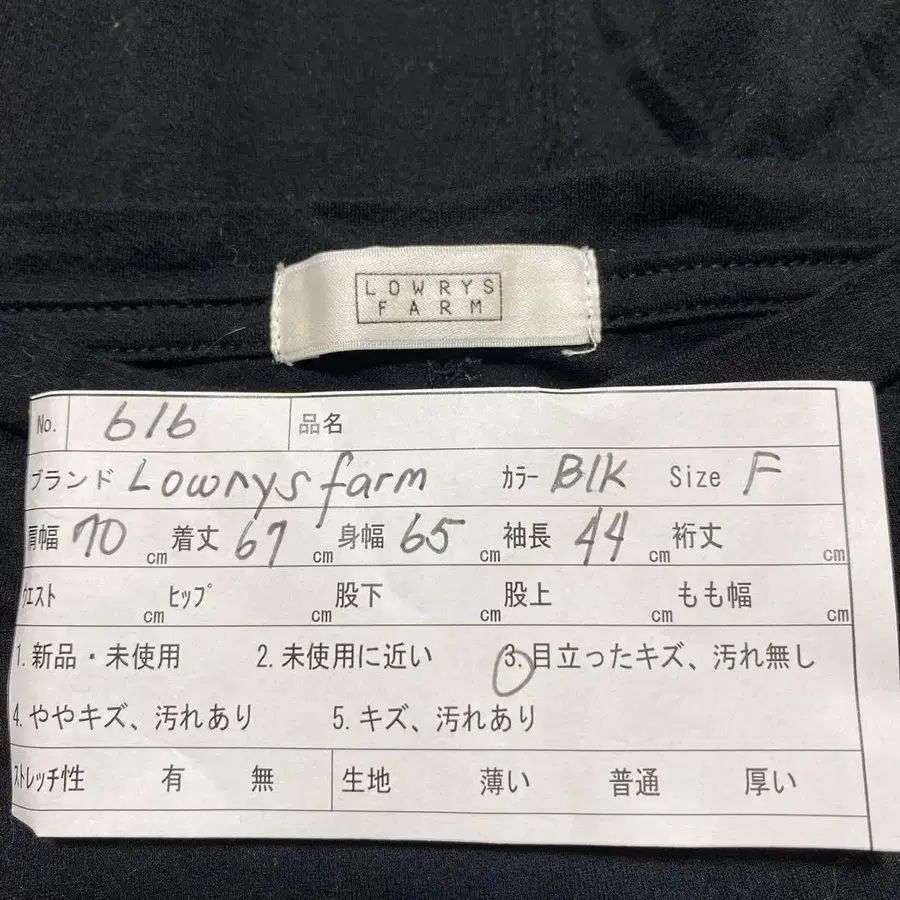 LOWRYS
FARM
No. 616 品名
ブランド Lowrys farm カラー Blk Size F
肩幅 70 cm 着丈 67 cm 身幅 65 cm 袖長 44 cm 裄丈 cm
ウエスト cm ヒップ cm 股下 cm 股上 cm もも幅 cm
1. 新品・未使用 2. 未使用に近い 3. 目立ったキズ、汚れ無し
4. ややキズ、汚れあり 5. キズ、汚れあり
ストレッチ性 有 無 生地 薄い 普通 厚い